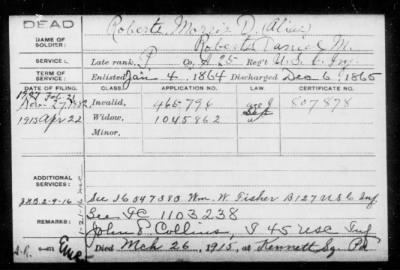 DEAD
NAME OF SOLDIER:
Roberts, Morris D. (Alias)
Roberts, Daniel M.
SERVICE:
Late rank, P Co. A 25 Reg't U.S.C. Inf.
TERM OF SERVICE:
Enlisted Jan 4, 1864 Discharged Dec 6, 1865
DATE OF FILING. CLASS. APPLICATION. LAW CERTIFICATE NO.
Invalid, 465794 507878
1915 Apr 22 Widow, 1045862
Minor,
ADDITIONAL SERVICES:
See 16 347383 Wm. W. Fisher B 127 U S C Inf
REMARKS:
See 1103238
John E. Collins, I 45 USC Inf
Died Mch 26, 1915, at Kennett Sq. Pa